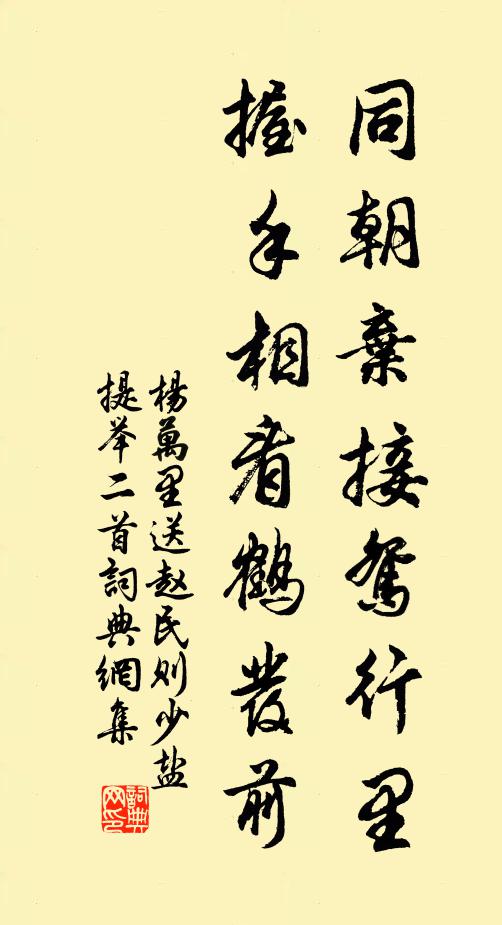 同朝棄接鴛行里
握手相看鶴發前
楊萬里送赵民则少盐
提举二首詞典網集
詞典網印